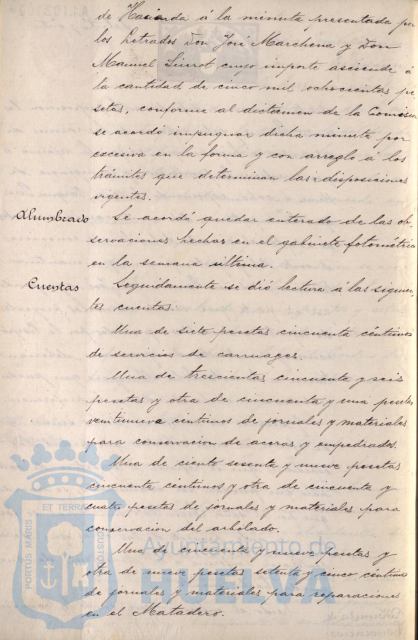 de Hacienda á la minuta presentada por
los Letrados Don José Marchena y Don
Manuel Siurot cuyo importe asciende á
la cantidad de cinco mil ochocientas pe
setas, conforme al dictámen de la Comision
se acordó impugnar dicha minuta por
excesiva en la forma y con arreglo á los
trámites que determinan las disposiciones
vigentes.
Alumbrado Se acordó quedar enterado de las ob
servaciones hechas en el gabinete fotométrico
en la semana última.
Cuentas Seguidamente se dió lectura á las siguien
tes cuentas:
Una de siete pesetas cincuenta céntimos
de servicios de carruages.
Una de trescientas cincuenta y seis
pesetas y otra de cincuenta y una pesetas
veintinueve céntimos de jornales y materiales
para conservacion de aceras y empedrados.
Una de ciento sesenta y nueve pesetas
cincuenta céntimos y otra de cincuenta y
cuatro pesetas de jornales y materiales para
conservacion del arbolado.
Una de cincuenta y nueve pesetas y
otra de nueve pesetas setenta y cinco céntimos
de jornales y materiales para reparaciones
en el Matadero.
PORTUS MARIS
ET TERRAE
CUSTODIA
Ayuntamiento de
HUELVA